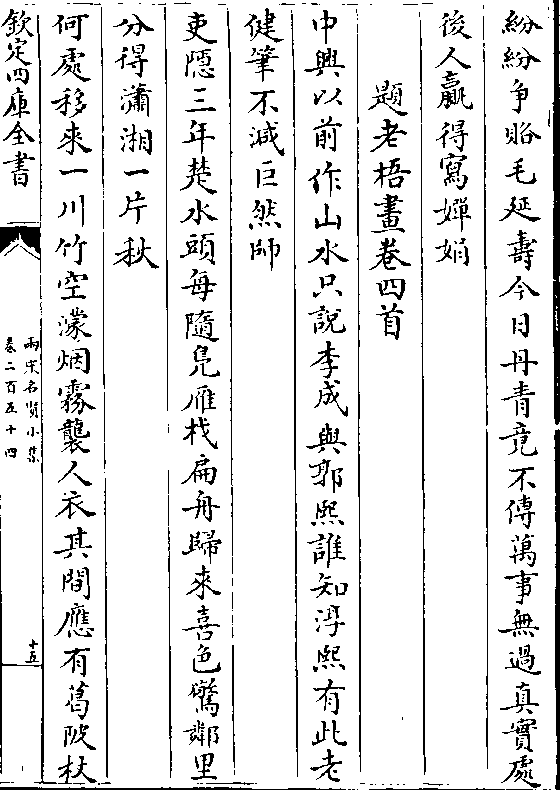 紛紛争貽毛延壽今日丹青竟不傳萬事無過真實處
後人贏得寫嬋娟
題老梧畫卷四首
中興以前作山水只說李成與郭熙誰知淳熙有此老
健筆不減巨然師
吏隱三年楚水頭每隨鳧雁栈扁舟歸來喜色驚鄰里
分得瀟湘一片秋
何處移來一川竹空濛烟霧襲人衣其間應有葛陂杖
欽定四庫全書
兩宋名賢小集
卷二百五十四
十五